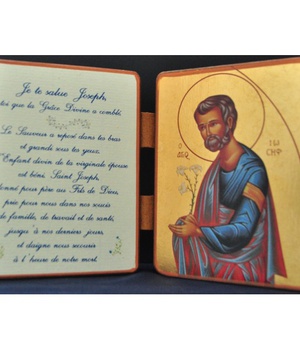 Je te salue Joseph,
toi que la Grâce Divine a comblé,
Le Sauveur a reposé dans tes bras
et grandi sous tes yeux.
Enfant divin de ta virginale épouse
est béni, Saint Joseph,
donné pour père au Fils de Dieu,
prie pour nous dans nos soucis
de famille, de travail et de santé,
jusqu'à nos derniers jours,
et daigne nous secourir
à l'heure de notre mort.
Ο
ΙΩ
ΣΗΦ